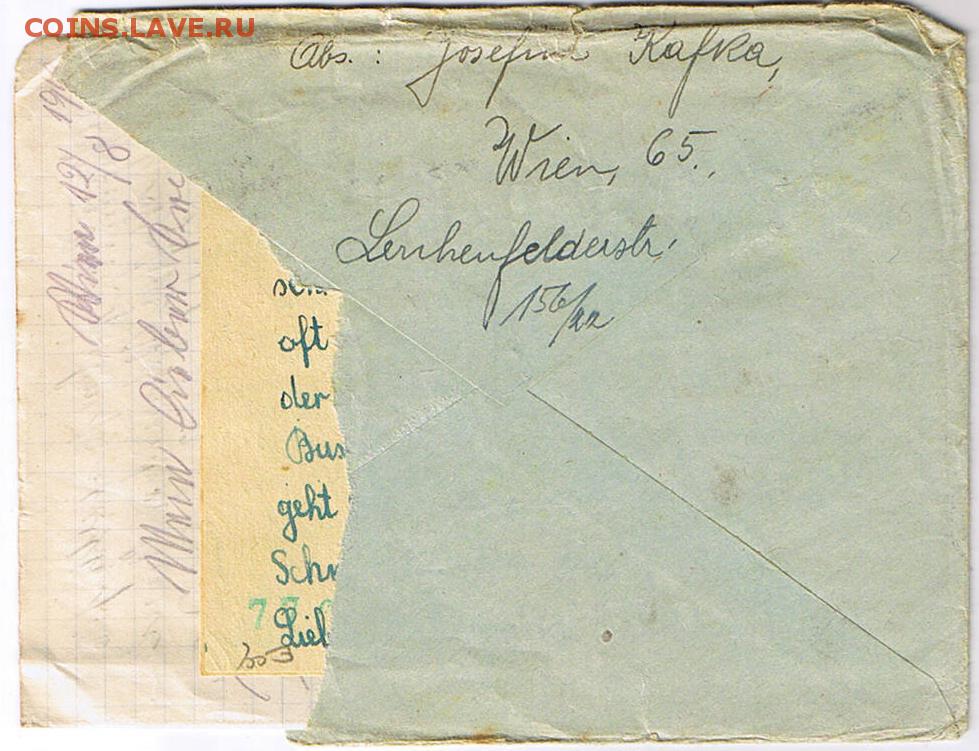 COINS.LAVE.RU
Abs.: Josefine Kafka,
Wien, 65.,
Lerchenfelderstr.
156/22
Wien 12/8 19
Mein lieber
oft
der
Bus
geht
Sch
Lieb